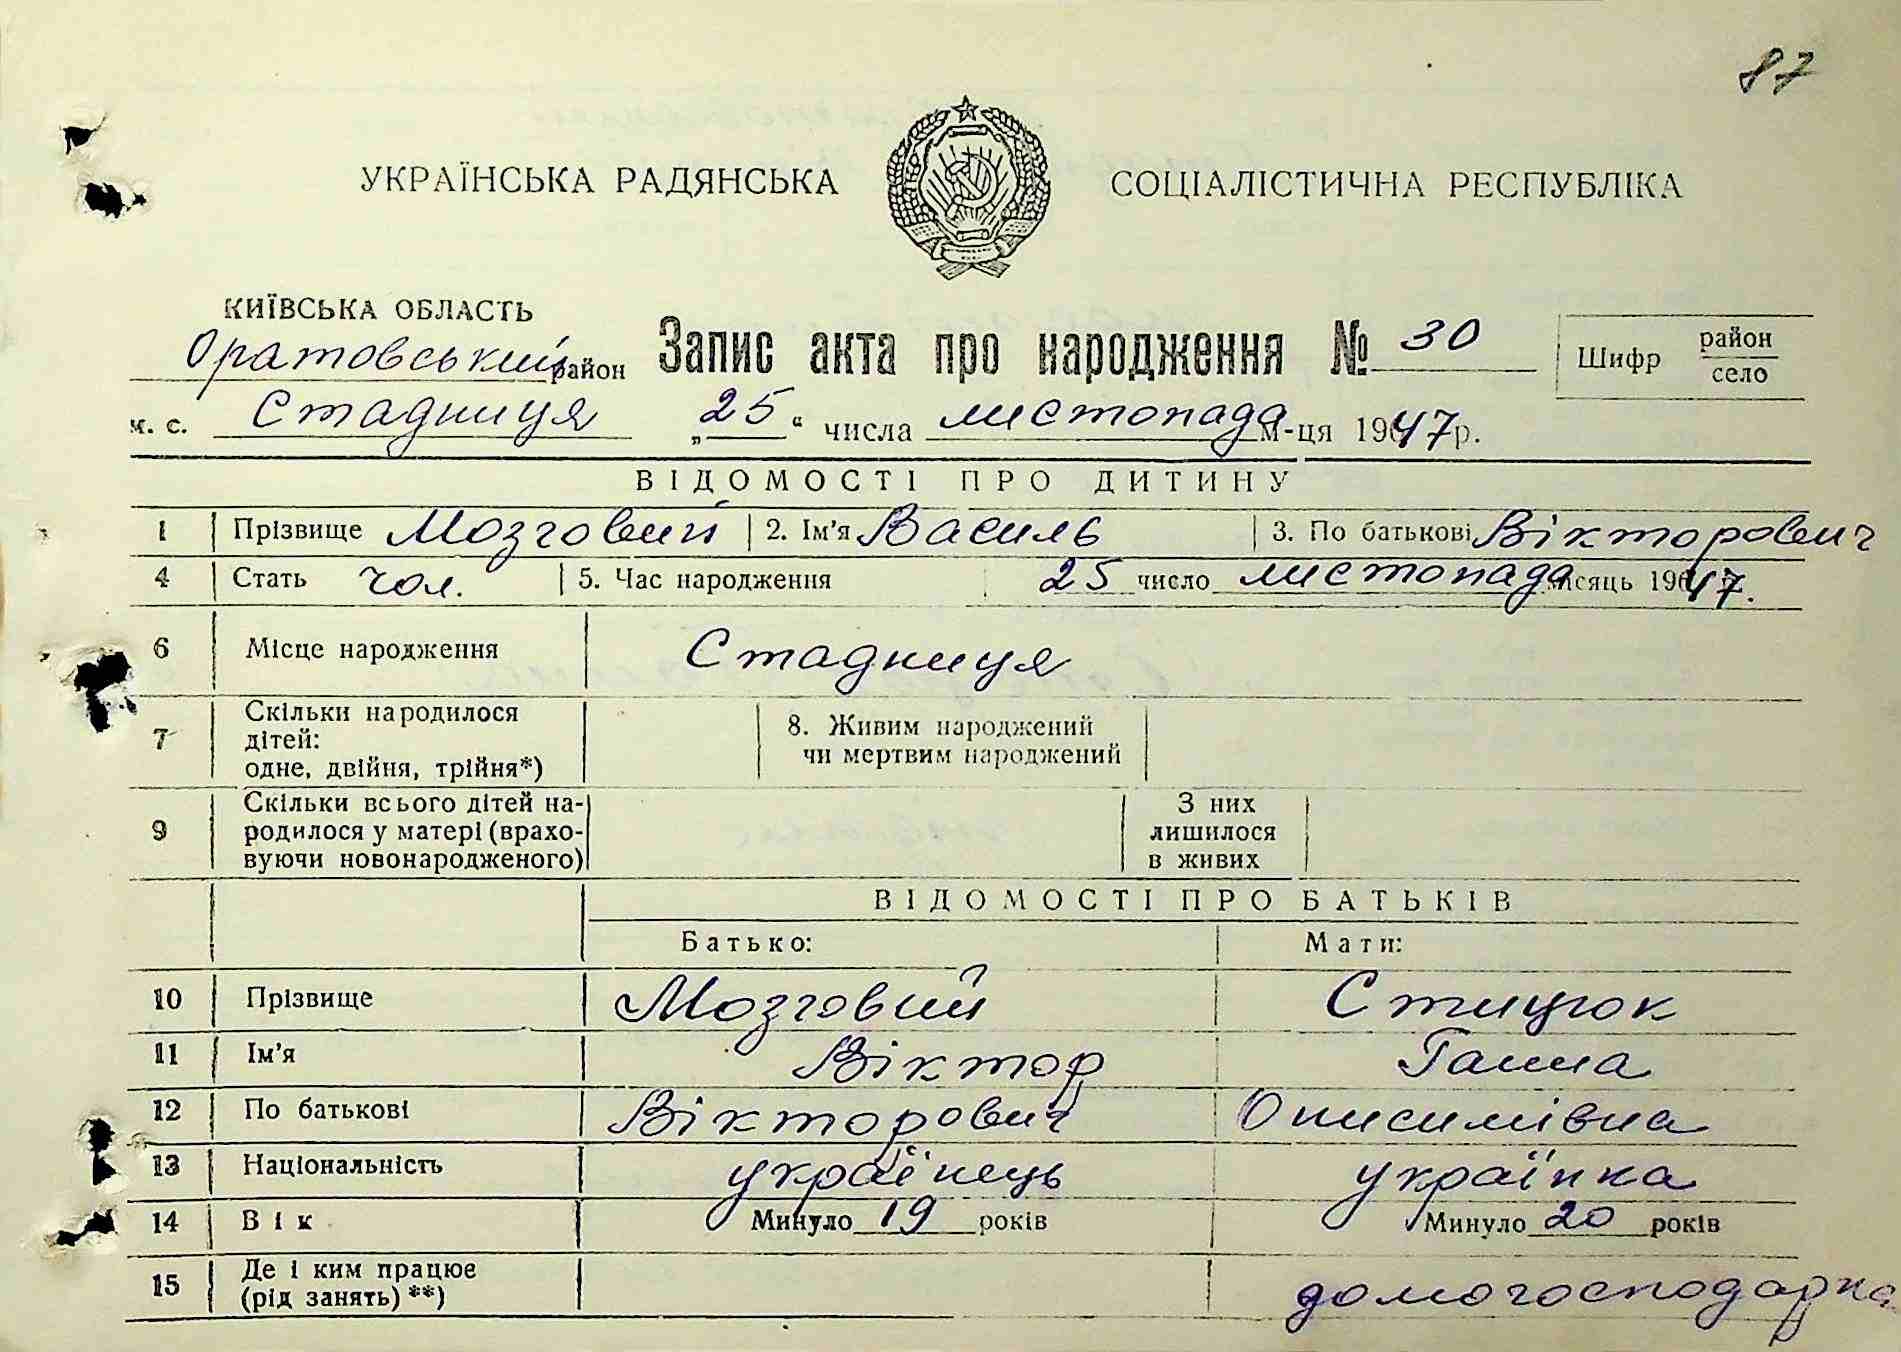 87
УКРАЇНСЬКА РАДЯНСЬКА СОЦІАЛІСТИЧНА РЕСПУБЛІКА
КИЇВСЬКА ОБЛАСТЬ
Оратовський район Запис акта про народження № 30 Шифр район село
м. с. Стадниця „25“ числа листопада м-ця 1947 р.
ВІДОМОСТІ ПРО ДИТИНУ
1 Прізвище Мозговий 2. Ім'я Василь 3. По батькові Вікторович
4 Стать чол. 5. Час народження 25 число листопада місяць 1947.
6 Місце народження Стадниця
7 Скільки народилося дітей: одне, двійня, трійня*) 8. Живим народжений чи мертвим народжений
9 Скільки всього дітей народилося у матері (враховуючи новонародженого) З них лишилося в живих
ВІДОМОСТІ ПРО БАТЬКІВ
Батько: Мати:
10 Прізвище Мозговий Стицюк
11 Ім'я Віктор Ганна
12 По батькові Вікторович Онисимівна
13 Національність українець українка
14 Вік Минуло 19 років Минуло 20 років
15 Де і ким працює (рід занять) **) домогосподарка